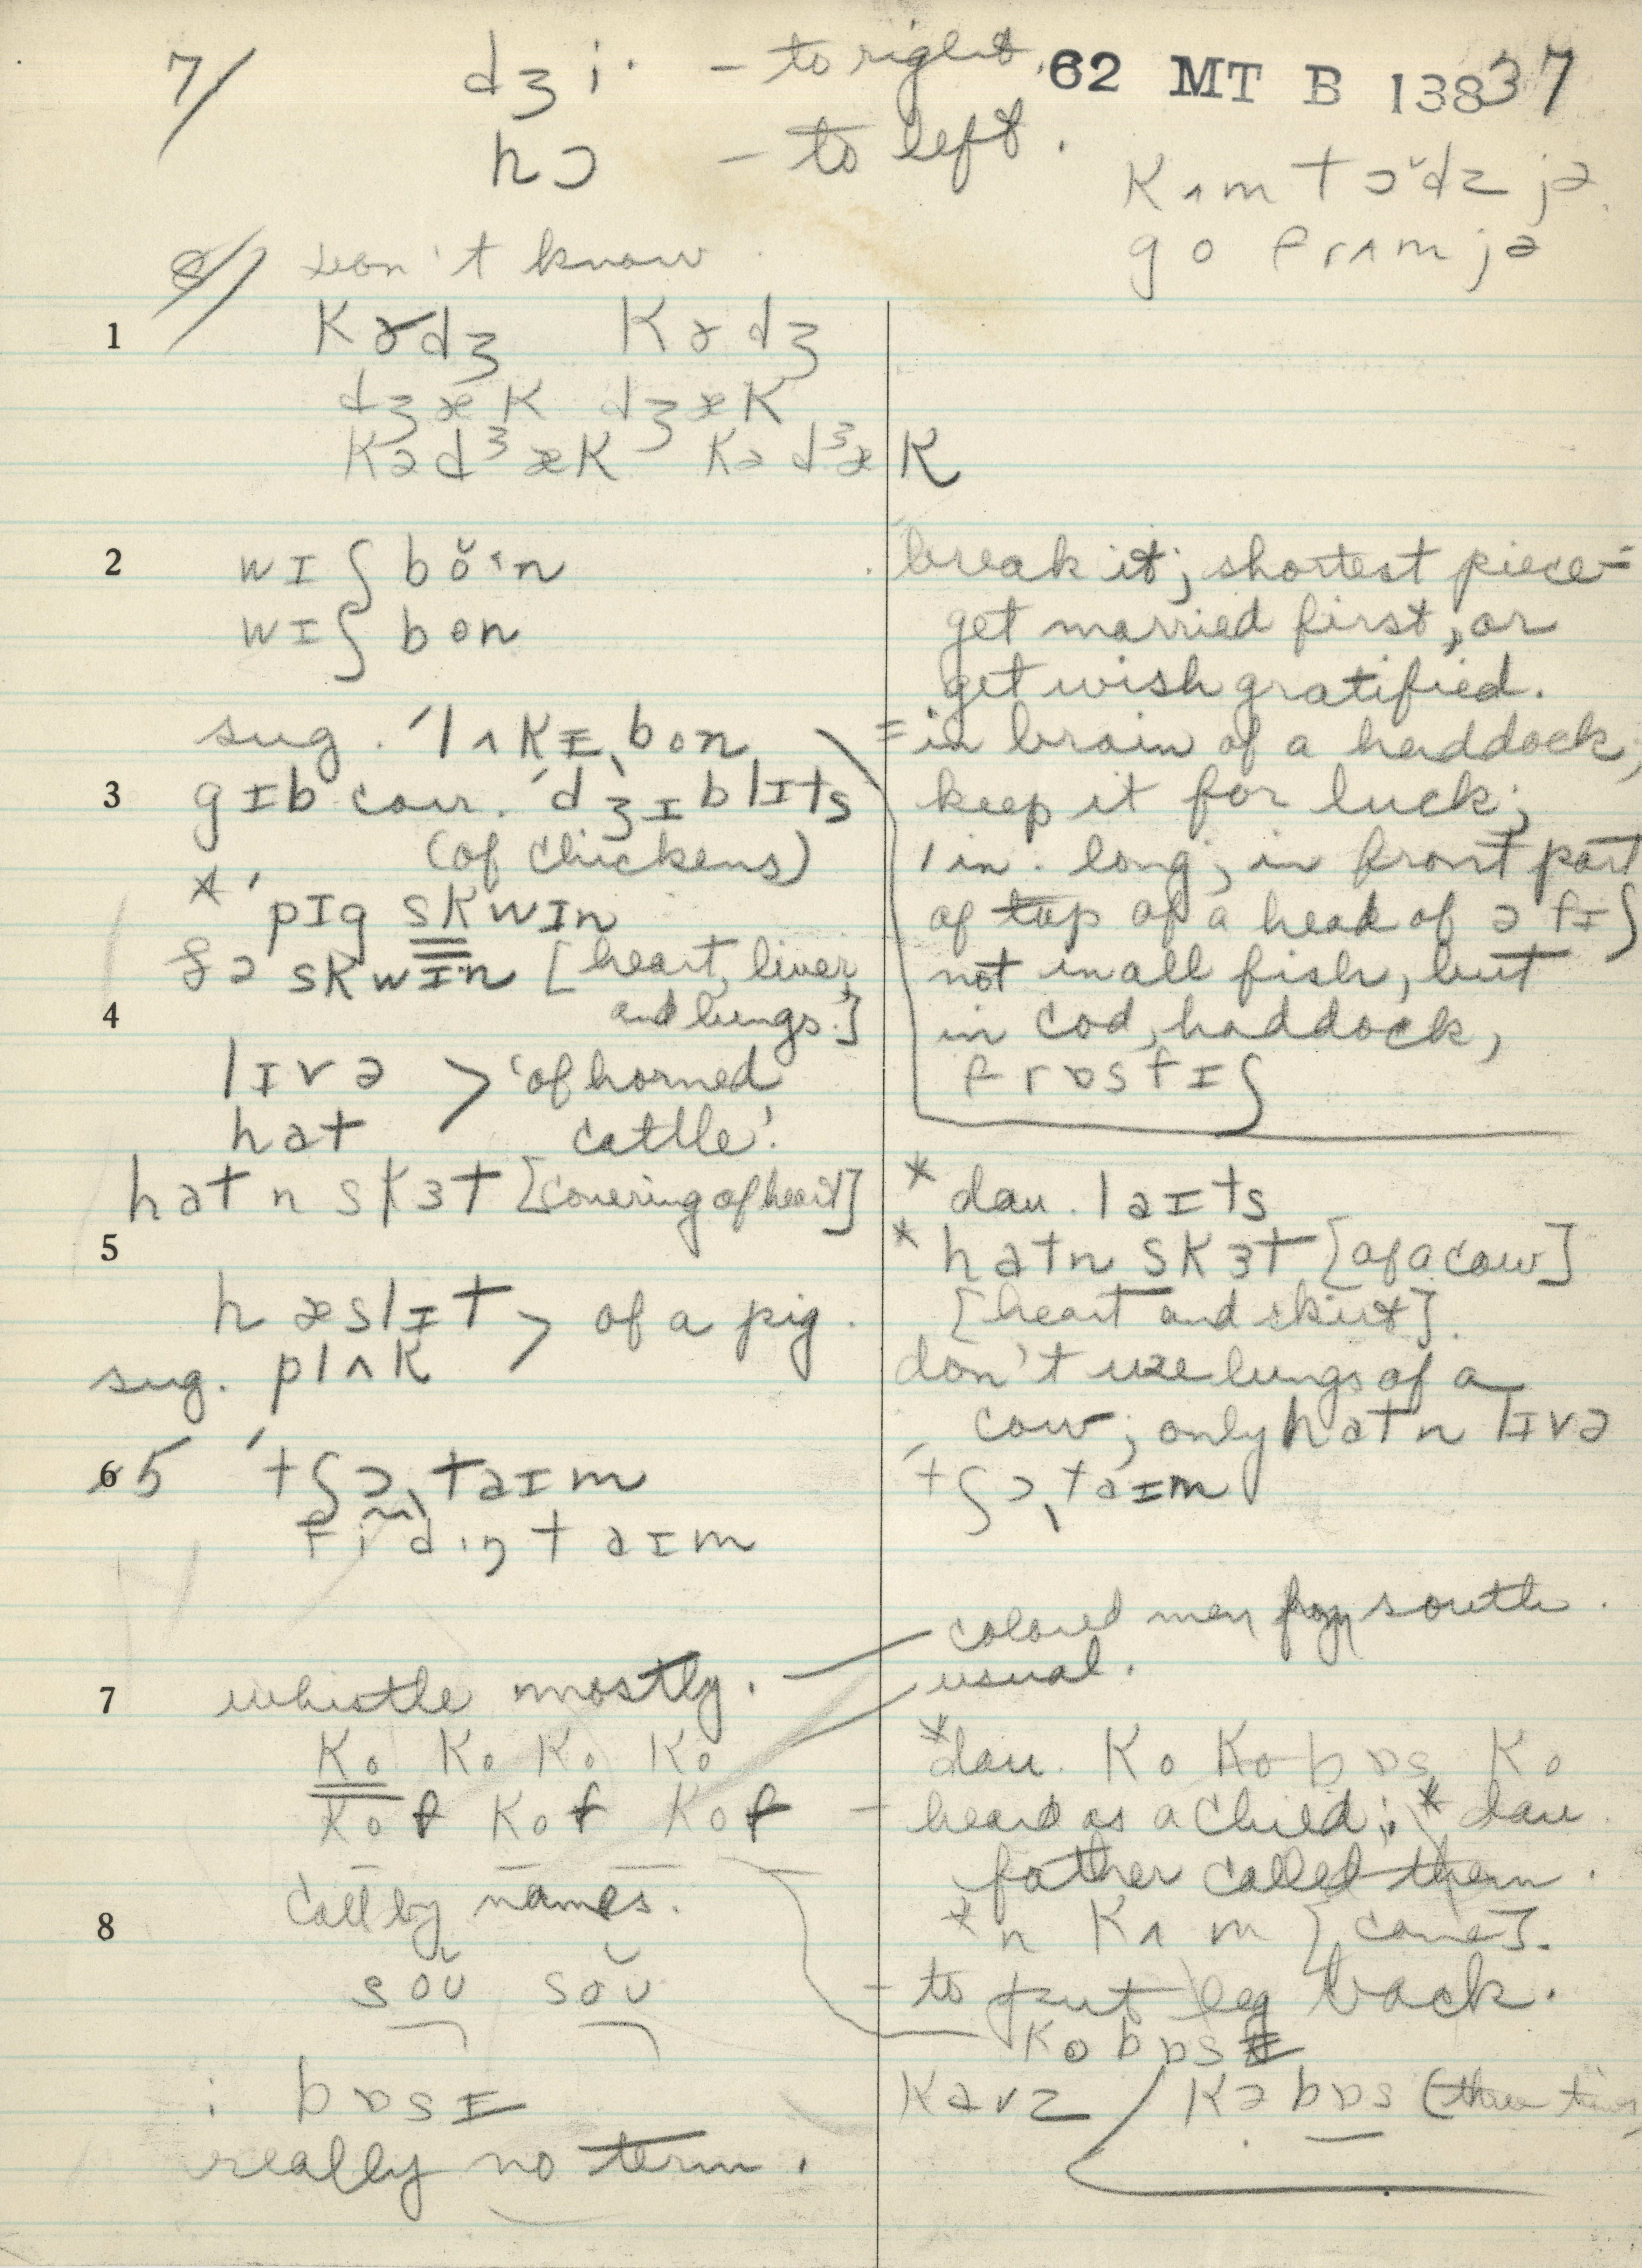 7/ dʒi· – to right. 62 MT B 13837
hɔ – to left.
kʌm tɔ̆dz jə
go frʌm jə
8/ Don't know.
1 kɤdʒ kɤdʒ
dʒæk dʒæk
kədʒæk kədʒæk
2 wɪʃ bŏ·n
wɪʃ bon
break it; shortest piece =
get married first, or
get wish gratified.
sug. ˈlʌkɪˌbon
= in brain of a haddock;
keep it for luck;
1 in. long; in front part
of top of a head of ə fɪʃ
not in all fish, but
in cod, haddock,
frɒstfɪʃ
3 gɪb corr. ˈdʒɪblɪts
(of chickens)
* ˈpɪg skwɪn
ðə skwɪn [heart, liver
4 and lungs.]
lɪvə > 'of horned
hat cattle'.
hat n skɜt [covering of heart]
5
* dau. laɪts
* hatn skɜt [of a cow]
[heart and skirt].
don't use lungs of a
cow; only hat n lɪvə
hæslɪt > of a pig.
sug. plʌk
6 5 ˈtʃɔˌtaɪm
fidɪŋtaɪm
ˈtʃɔˌtaɪm
7 whistle mostly. —
colored men from south.
usual.
ko ko ko ko
kof kof kof –
call by names.
* dau. ko ko bɒs ko
heard as a child; * dau.
father called them.
* n kʌm [come].
8 soʊ soʊ
– to put leg back.
kobɒsɪ
: bɒsɪ
kavz / kəbɒs (three times)
really no term.